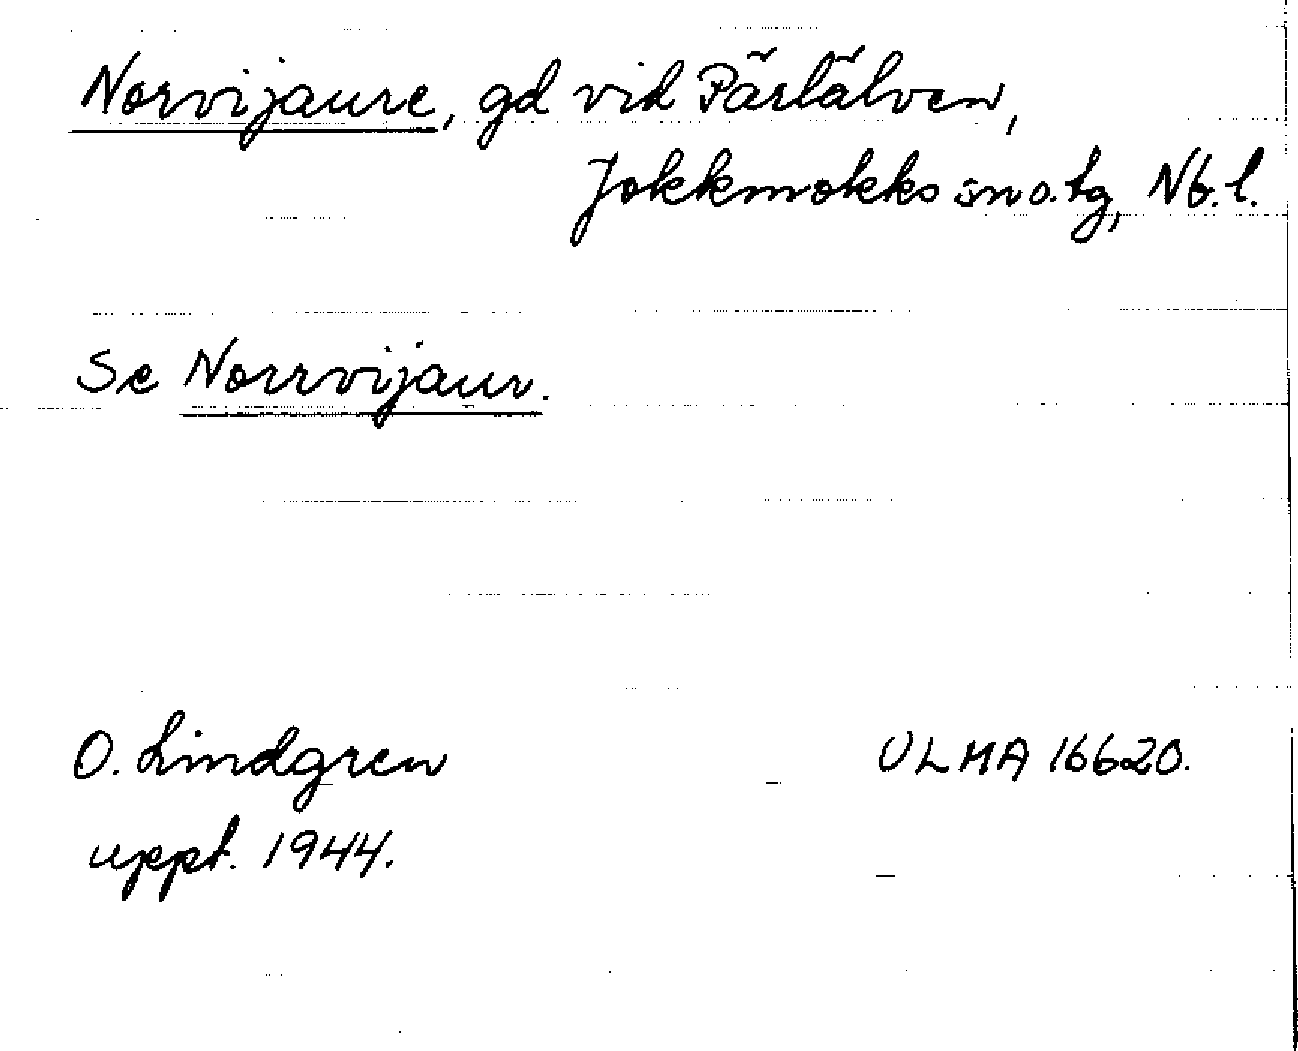 Norvijaure, gd vid Pärlälven,
Jokkmokks sn o. tg, Nb. l.
Se Norrvijaur.
O. Lindgren
uppt. 1944.
ULMA 16620.